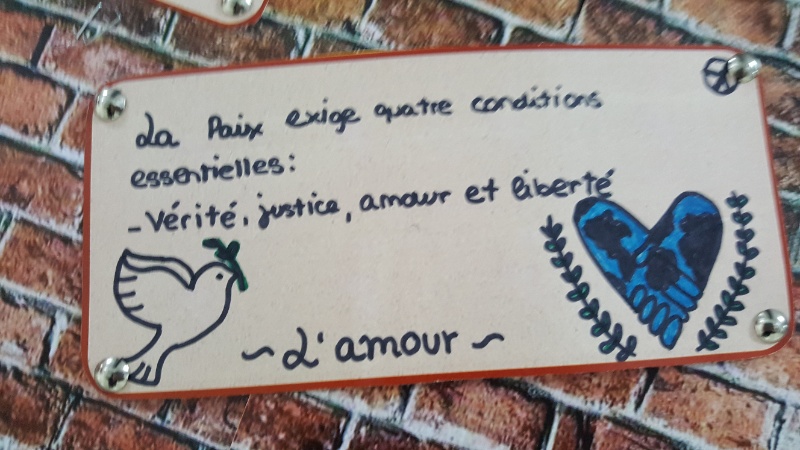 La Paix exige quatre conditions
essentielles:
- Vérité, justice, amour et liberté
~ L'amour ~